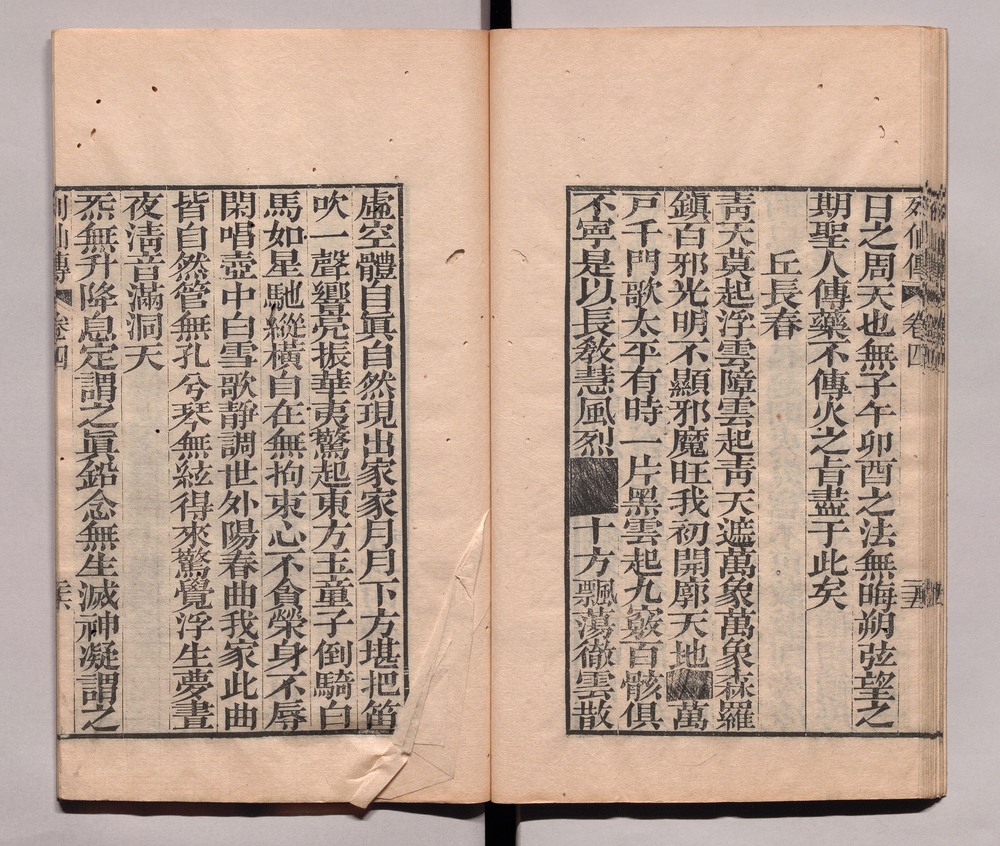 列仙傳 卷四
日之周天也無子午卯酉之法無晦朔弦望之
期聖人傳藥不傳火之旨盡于此矣
丘長春
靑天莫起浮雲障雲起靑天遮萬象萬象森羅
鎮百邪光明不顯邪魔旺我初開廓天地萬
戶千門歌太平有時一片黑雲起九竅百骸俱
不寧是以長敎慧風烈十方飄蕩徹雲散
虛空體自眞自然現出家家月月下方堪把笛
吹一聲響亮振華夷驚起東方玉童子倒騎白
馬如星馳縱橫自在無拘束心不貪榮身不辱
閑唱壺中白雪歌靜調世外陽春曲我家此曲
皆自然管無孔兮琴無絃得來驚覺浮生夢晝
夜淸音滿洞天
炁無升降息定謂之眞鉛念無生滅神凝謂之
列仙傳 卷四